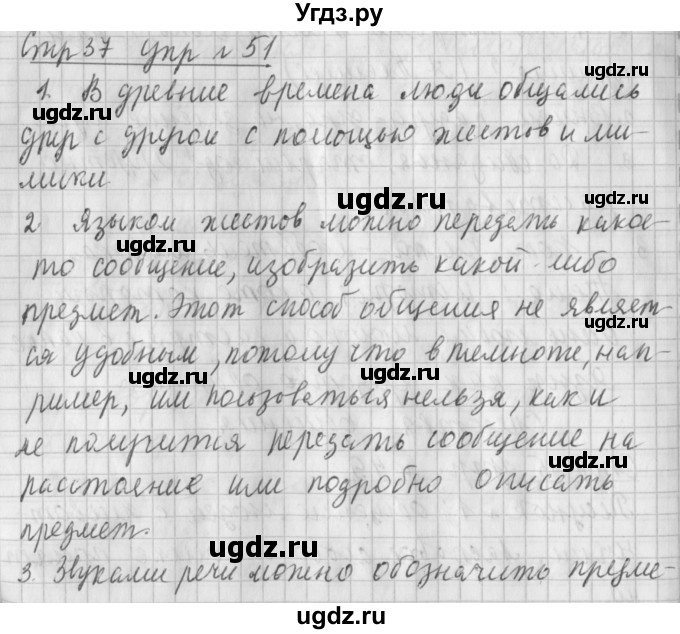 Угдз.ру
Стр 37 упр № 51
ugdz.ru
1. В древние времена люди общались
ugdz.ru
друг с другом с помощью жестов и ми-
мики
ugdz.ru
ugdz.ru
2 Языком жестов можно передать какое-
ugdz.ru
то сообщение, изобразить какой-либо
предмет. Этот способ общения не являет-
ugdz.ru
ся удобным, потому что в темноте, нап-
ugdz.ru
ugdz.ru
ример, им пользоваться нельзя, как и
не получится передать сообщение на
ugdz.ru
расстояние или подробно описать
предмет.
ugdz.ru
3. Звуками речи можно обозначить предме-
ugdz.ru
ugdz.ru
Угдз.ру